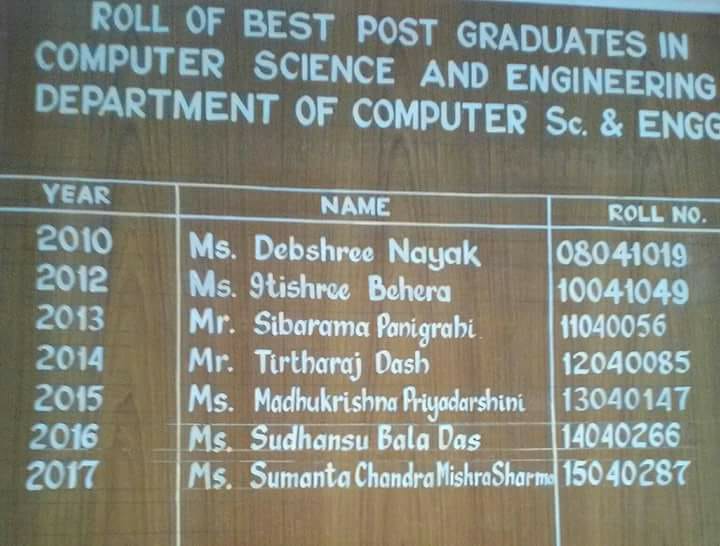 ROLL OF BEST POST GRADUATES IN
COMPUTER SCIENCE AND ENGINEERING
DEPARTMENT OF COMPUTER Sc. & ENGG
YEAR NAME ROLL NO.
2010 Ms. Debshree Nayak 08041019
2012 Ms. Itishree Behera 10041049
2013 Mr. Sibarama Panigrahi 11040056
2014 Mr. Tirtharaj Dash 12040085
2015 Ms. Madhukrishna Priyadarshini 13040147
2016 Ms. Sudhansu Bala Das 14040266
2017 Ms. Sumanta Chandra Mishra Sharma 15040287